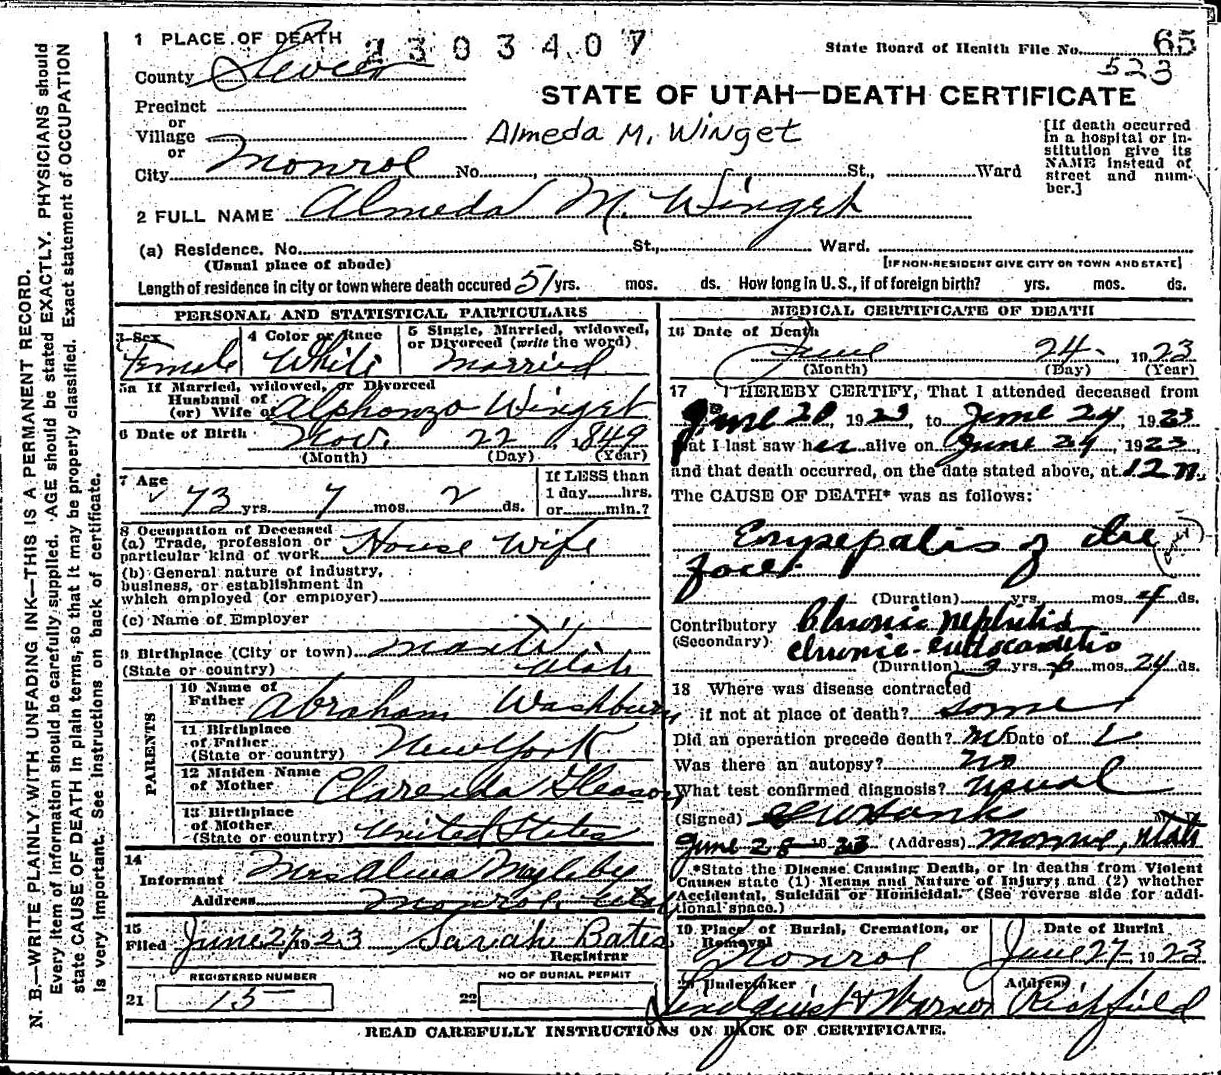 1 PLACE OF DEATH
2303407
State Board of Health File No. 65
523
County Sevier
STATE OF UTAH—DEATH CERTIFICATE
Precinct
or
Village
Almeda M. Winget
or
City Monroe No. St., Ward
[If death occurred in a hospital or institution give its NAME instead of street and number.]
2 FULL NAME Almeda M. Winget
(a) Residence. No. St., Ward.
(Usual place of abode)
[IF NON-RESIDENT GIVE CITY OR TOWN AND STATE]
Length of residence in city or town where death occured 51 yrs. mos. ds. How long in U.S., if of foreign birth? yrs. mos. ds.
PERSONAL AND STATISTICAL PARTICULARS
3 Sex
Female
4 Color or Race
White
5 Single, Married, widowed,
or Divorced (write the word)
Married
5a If Married, widowed, or Divorced
Husband of
(or) Wife of Alphonzo Winget
6 Date of Birth Nov. 22 1849
(Month) (Day) (Year)
7 Age
73 yrs. 7 mos. 2 ds.
If LESS than
1 day hrs.
or min.?
8 Occupation of Deceased
(a) Trade, profession or
particular kind of work House Wife
(b) General nature of industry,
business, or establishment in
which employed (or employer)
(c) Name of Employer
9 Birthplace (City or town) Manti
(State or country) Utah
PARENTS
10 Name of
Father Abraham Washburn
11 Birthplace
of Father
(State or country) New York
12 Maiden Name
of Mother Clarenda Gleason
13 Birthplace
of Mother
(State or country) United States
14
Informant Mrs Alma Magleby
Address Monroe Utah
15
Filed June 27, 1923 Sarah Bates
Registrar
REGISTERED NUMBER
21 15
NO OF BURIAL PERMIT
22
MEDICAL CERTIFICATE OF DEATH
16 Date of Death
June 24 1923
(Month) (Day) (Year)
17 I HEREBY CERTIFY, That I attended deceased from
June 20 1923, to June 24, 1923
that I last saw her alive on June 24, 1923
and that death occurred, on the date stated above, at 12 n.
The CAUSE OF DEATH* was as follows:
Erysepalis of the
face.
(Duration) yrs. mos. 4 ds.
Contributory Chronic nephritis
(Secondary) Chronic endocarditis
(Duration) 2 yrs. 6 mos. 24 ds.
18 Where was disease contracted
if not at place of death? Some
Did an operation precede death? no Date of
Was there an autopsy? no
What test confirmed diagnosis? usual
(Signed)
June 28 1923 (Address) Monroe, Utah
*State the Disease Causing Death, or in deaths from Violent
Causes state (1) Means and Nature of Injury; and (2) whether
Accidental, Suicidal or Homicidal. (See reverse side for addi-
tional space.)
19 Place of Burial, Cremation, or
Removal
Monroe
Date of Burial
June 27, 1923
20 Undertaker
Lindquist & Warnock
Address
Richfield
READ CAREFULLY INSTRUCTIONS ON BACK OF CERTIFICATE.
N. B.—WRITE PLAINLY, WITH UNFADING INK—THIS IS A PERMANENT RECORD.
Every item of information should be carefully supplied. AGE should be stated EXACTLY. PHYSICIANS should
state CAUSE OF DEATH in plain terms, so that it may be properly classified. Exact statement of OCCUPATION
is very important. See Instructions on back of certificate.